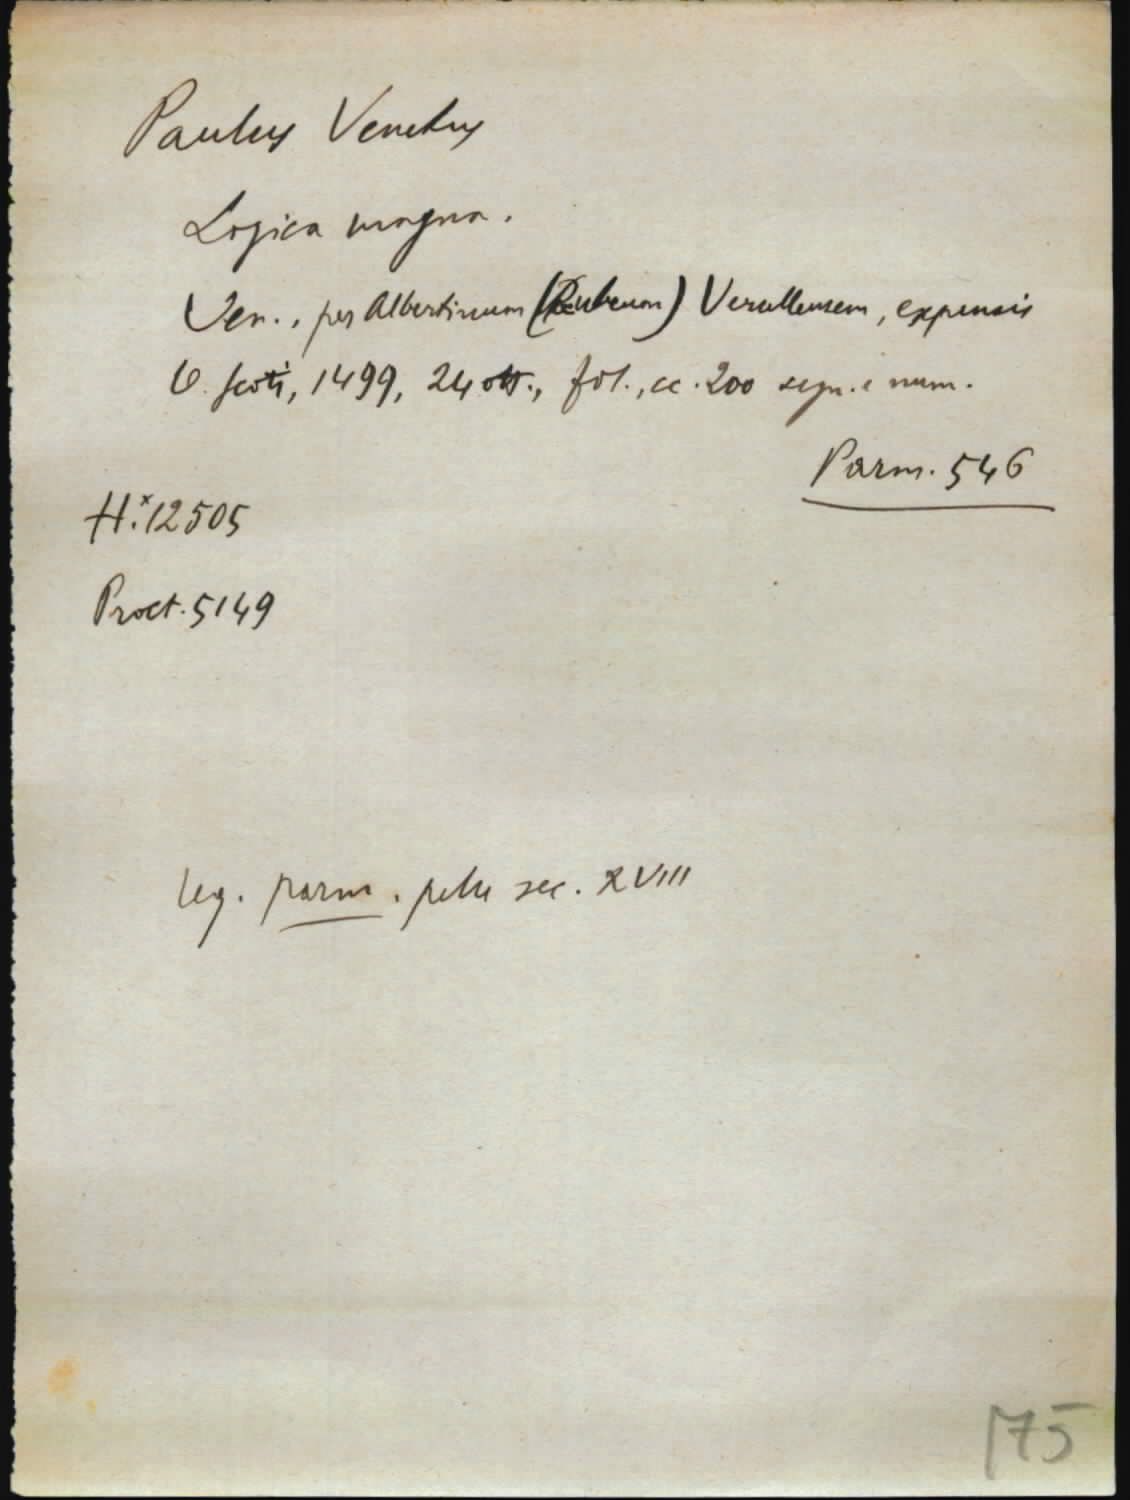 Paulus Venetus
Logica magna.
Ven., per Albertinum (Rubeum) Vercellensem, expensis
O. Scoti, 1499, 24 ott., fol., cc. 200 segn. e num.
Parm. 546
H.x12505
Proct. 5149
leg. parm. pelle sec. XVIII
175